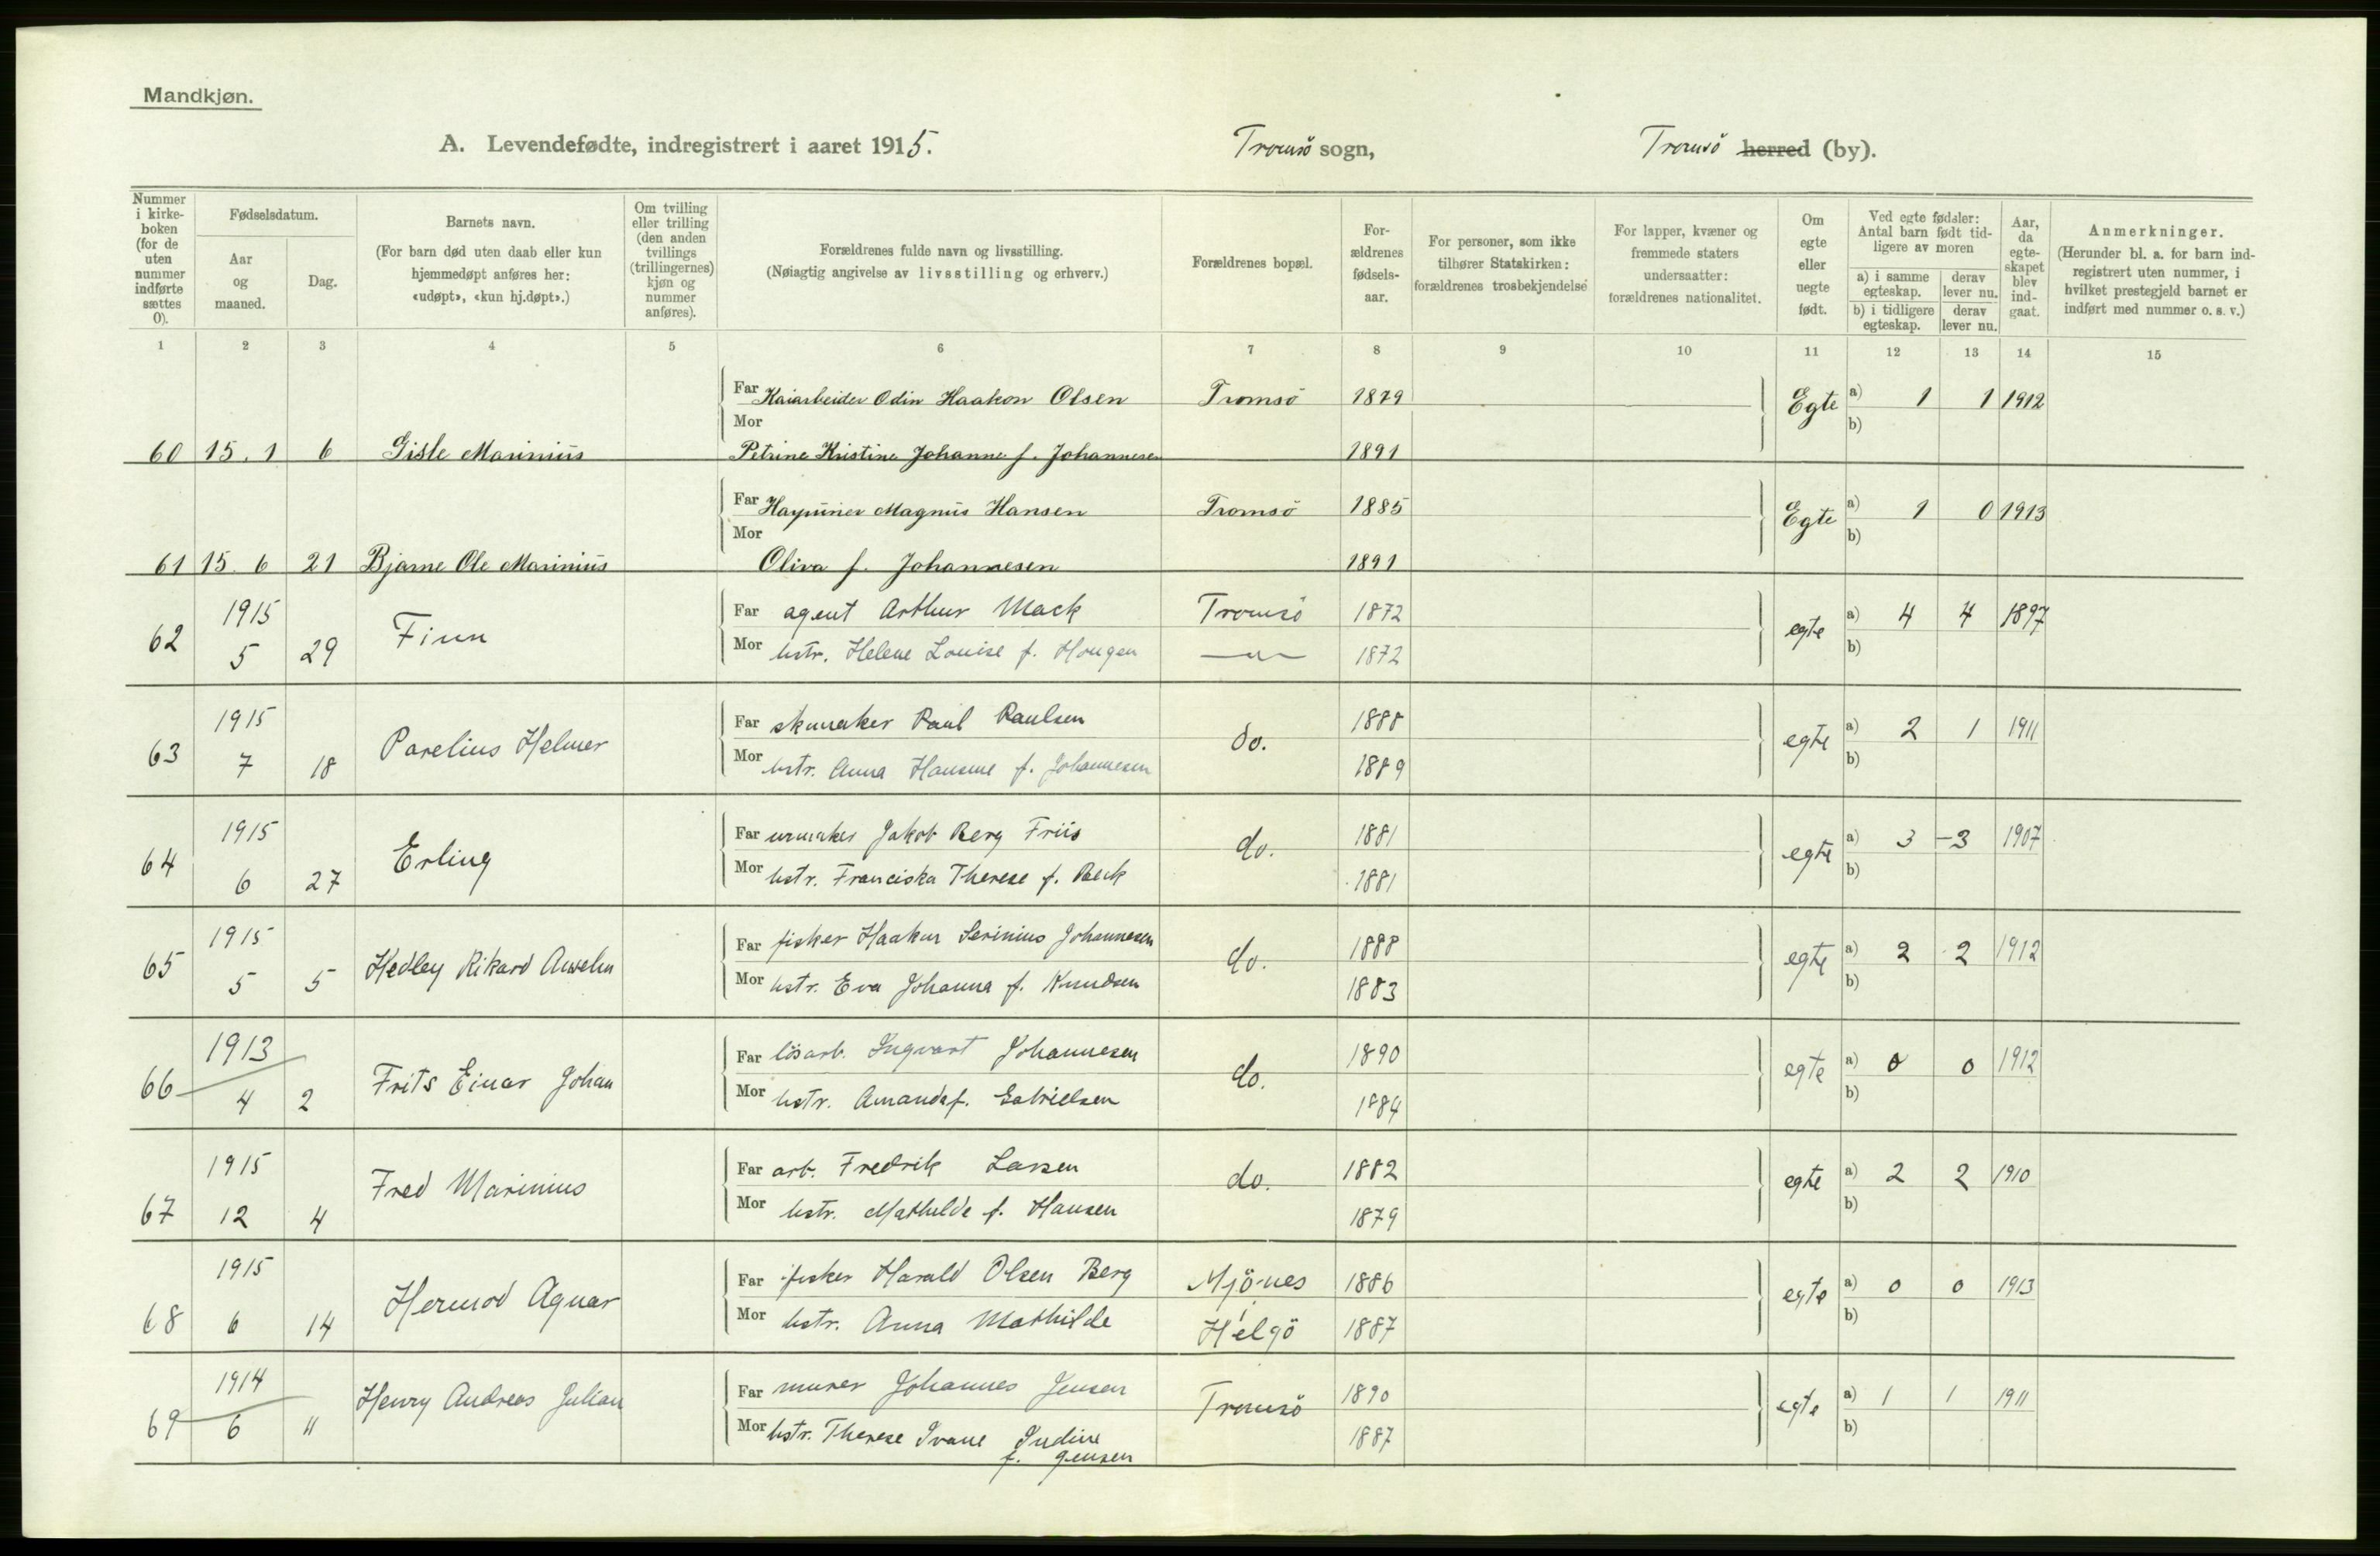 Mandkjøn.
A. Levendefødte, indregistrert i aaret 1915. Tromsö sogn, Tromsö herred (by).
Nummer i kirke-boken (for de uten nummer indførte sættes 0).
Fødselsdatum.
Aar og maaned.
Dag.
Barnets navn.
(For barn død uten daab eller kun hjemmedøpt anføres her: «udøpt», «kun hj.døpt».)
Om tvilling eller trilling (den anden tvillings (trillingernes) kjøn og nummer anføres).
Forældrenes fulde navn og livsstilling.
(Nøiagtig angivelse av livsstilling og erhverv.)
Forældrenes bopæl.
For-ældrenes fødsels-aar.
For personer, som ikke tilhører Statskirken: forældrenes trosbekjendelse
For lapper, kvæner og fremmede staters undersaatter: forældrenes nationalitet.
Om egte eller uegte født.
Ved egte fødsler: Antal barn født tid-ligere av moren
a) i samme egteskap. derav lever nu.
b) i tidligere egteskap. derav lever nu.
Aar, da egte-skapet blev ind-gaat.
Anmerkninger.
(Herunder bl. a. for barn ind-registrert uten nummer, i hvilket prestegjeld barnet er indført med nummer o. s. v.)
1 2 3 4 5 6 7 8 9 10 11 12 13 14 15
Far Kaiarbeider Odin Haakon Olsen Tromsö 1879 Egte a) 1 1 1912
Mor b)
60 15. 1 6 Gisle Marinius Petrine Kristine Johanne f. Johannesen 1891
Far Magnus Hansen Tromsö 1885 Egte a) 1 0 1913
Mor b)
61 15. 6 21 Bjarne Ole Marinius Oliva f. Johannesen 1891
62 1915 Finn Far agent Arthur Mack Tromsö 1872 egte a) 4 4 1897
5 29 Mor hstr. Helene Louise f. Hougen —„— 1872 b)
63 1915 Parelius Helmer Far skomaker Paul Paulsen do. 1888 egte a) 2 1 1911
7 18 Mor hstr. Anna Hansine f. Johannesen 1889 b)
64 1915 Erling Far urmaker Jakob Berg Friis do. 1881 egte a) 3 -3 1907
6 27 Mor hstr. Franciska Therese f. Beck 1881 b)
65 1915 Hedley Rikard Anselm Far fisker Haakon Serinius Johannesen do. 1888 egte a) 2 2 1912
5 5 Mor hstr. Eva Johanna f. Knudsen 1883 b)
66 1913 Frits Einar Johan Far lösarb. Ingvart Johannesen do. 1890 egte a) 0 0 1912
4 2 Mor hstr. Amanda f. Gabrielsen 1884 b)
67 1915 Fred Marinius Far arb. Fredrik Larsen do. 1882 egte a) 2 2 1910
12 4 Mor hstr. Mathilde f. Hansen 1879 b)
68 1915 Hermod Agnar Far fisker Harald Olsen Berg Mjönes 1886 egte a) 0 0 1913
6 14 Mor hstr. Anna Mathilde Helgö 1887 b)
69 1914 Henry Andreas Julian Far murer Johannes Jensen Tromsö 1890 egte a) 1 1 1911
6 11 Mor hstr. Therese Ivane Indine 1887 b)
f. Jensen